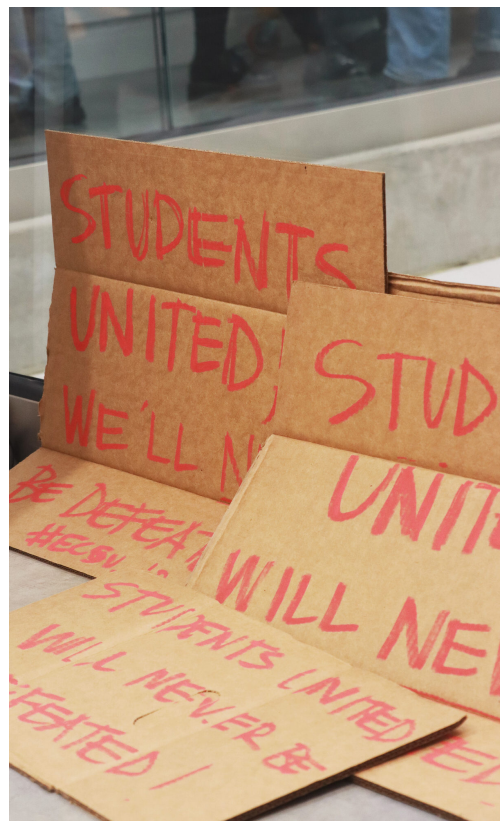 STUDENTS
UNITED,
WE'LL N
BE DEFEAT
STUD
UNIT
WILL NEV
STUDENTS UNITED
WILL NEVER BE
EFEATED!
ED!